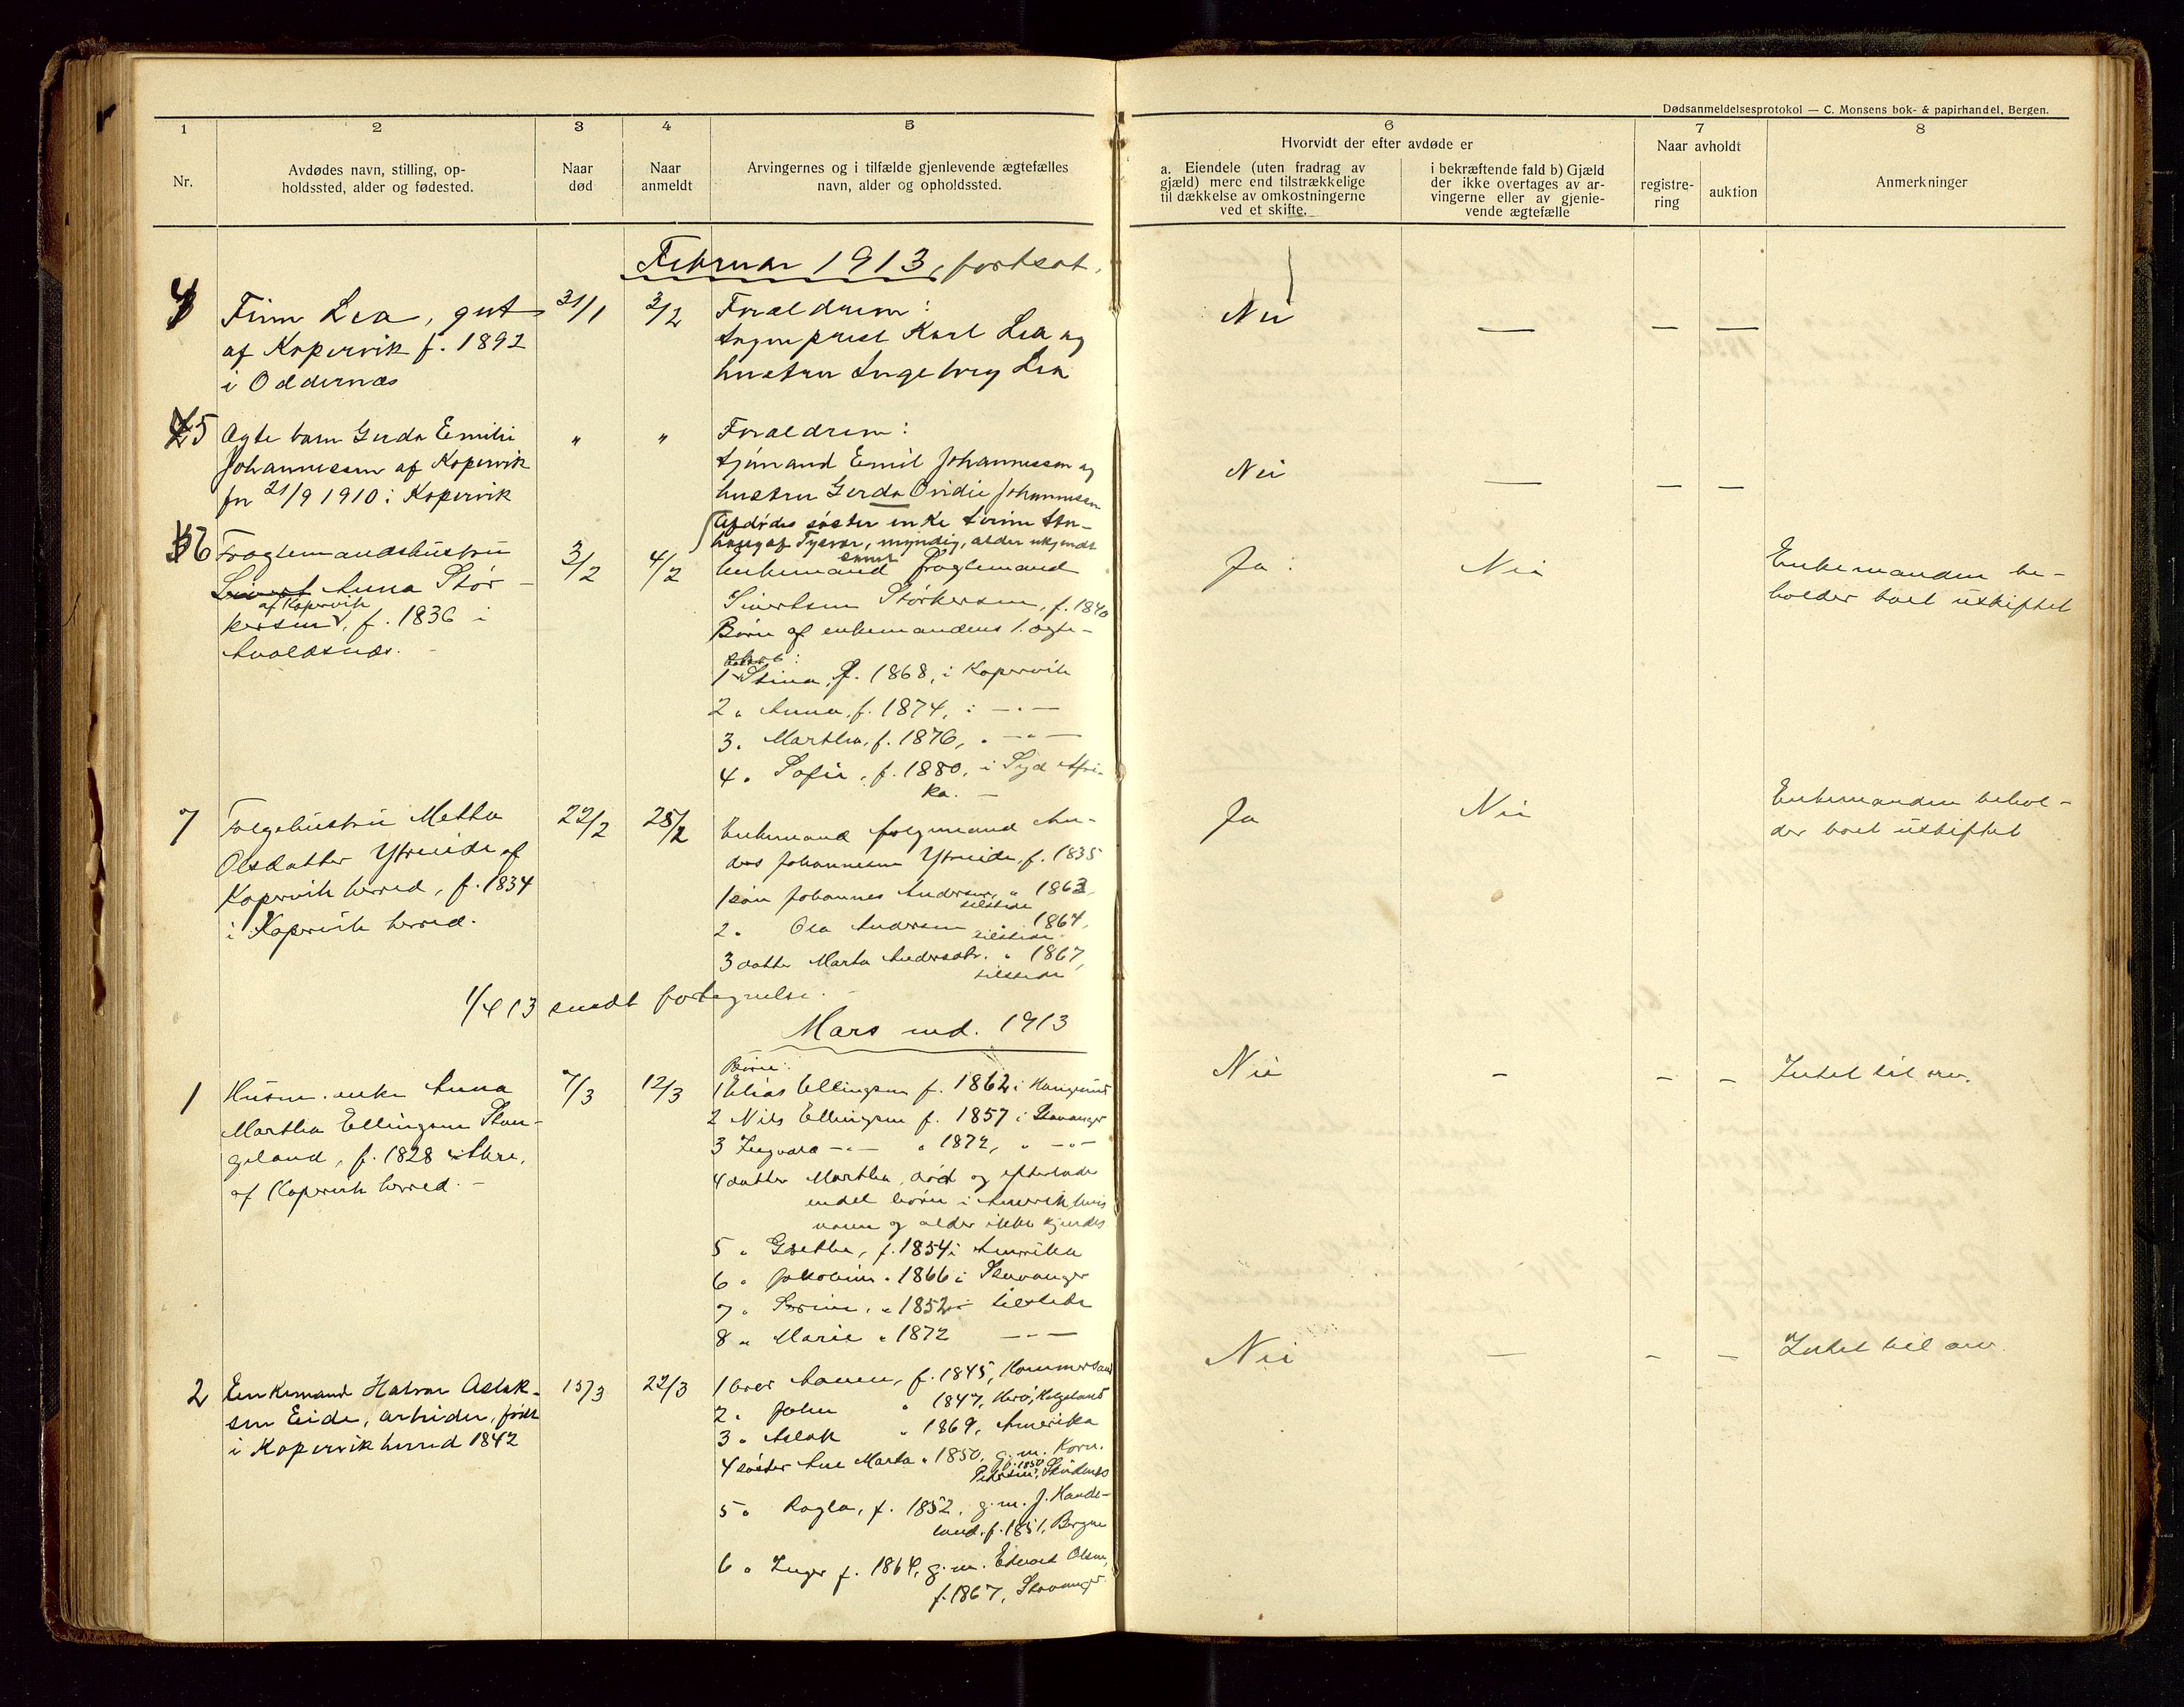 Dødsanmeldelsesprotokol — C. Monsens bok- & papirhandel, Bergen.
1 2 3 4 5 6 7 8
Nr.
Avdødes navn, stilling, op-
holdssted, alder og fødested.
Naar
død
Naar
anmeldt
Arvingernes og i tilfælde gjenlevende ægtefælles
navn, alder og opholdssted.
Hvorvidt der efter avdøde er
a. Eiendele (uten fradrag av
gjæld) mere end tilstrækkelige
til dækkelse av omkostningerne
ved et skifte.
i bekræftende fald b) Gjæld
der ikke overtages av ar-
vingerne eller av gjenle-
vende ægtefælle
Naar avholdt
registre-
ring
auktion
Anmerkninger
Februar 1913, fortsat.
4
Finn Lea, gut
af Kopervik f. 1892
i Oddernæs
31/1
3/2
Forældrene:
sogneprest Karl Lea og
hustru Ingeborg Lea
Nei — — —
5
Ægte barn Gerda Emilie
Johannessen af Kopervik
fn 21/9 1910 i Kopervik
" "
Forældrene:
Emil Johannessen og
hustru Gerda Ovidie Johannessen
Nei — — —
6
Fragtemandshustru
Anna Stör-
af Kopervik
kersen, f. 1836 i
Avaldsnæs.
3/2
4/2
Afdødes søster enke
af Tysvær, myndig, alder ukjendt
samt
Enkemand fragtemand
Sivertsen Störkersen, f. 1840
Børn af enkemandens 1. ægte-
skab:
1 Stina, f. 1868, i Kopervik
2 " Anna, f. 1874, i — " —
3. Martha, f. 1876, " — " —
4 " Sofie, f. 1880, i Syd Afri-
ka. —
Ja
Nei
Enkemanden be-
holder boet uskiftet
7
Følgehustru Metta
Olsdatter Ytreeide af
Kopervik herred, f. 1834
i Kopervik herred.
22/2
28/2
Enkemand følgemand An-
ders Johannesen Ytreeide, f. 1835
1 søn Johannes Andersen, " 1863,
tilstede
2 " Ola Andersen " 1864,
tilstede
3 datter Marta Andersdtr. " 1867,
tilstede
Ja
Nei
Enkemanden behol-
der boet uskiftet
1/4 13 sendt fortegnelse.
Mars md. 1913
1
Husm. enke Anna
Martha Ellingsen Stan-
geland, f. 1828 i Akre,
af Kopervik herred. —
7/3
12/3
Børn:
1 Elias Ellingsen f. 1862 i Haugesund
2 Nils Ellingsen f. 1857 i Stavanger
3 Ingvald — " — " 1872, " — " —
4 datter Martha, død og efterlader
endel børn i Amerika, hvis
navn og alder ikke kjendes
5 " Grethe, f. 1854 i Amerika
6 " Jakobine " 1866 i Stavanger
7 " Serine, " 1852 tilstede
8 " Marie " 1872 — " —
Nei — — —
Intet til arv.
2
Enkemand Halvor Aslak-
sen Eide, arbeider, født
i Kopervik herred 1842
15/3
22/3
1 bror Aanen, f. 1845, Hammersand
2. John " 1847, Herø, Helgeland
3 " Aslak " 1869, Amerika
4 søster Ane Marta " 1850, g. m. Korn.
Pedersen, f. 1850, Skudenes
5 " Ragla, f. 1852, g. m. J. Hande-
land, f. 1851, Bergen
6 " Inger f. 1864, g. m. Edvard Olsen,
f. 1867, Stavanger
Nei — — —
Intet til arv.